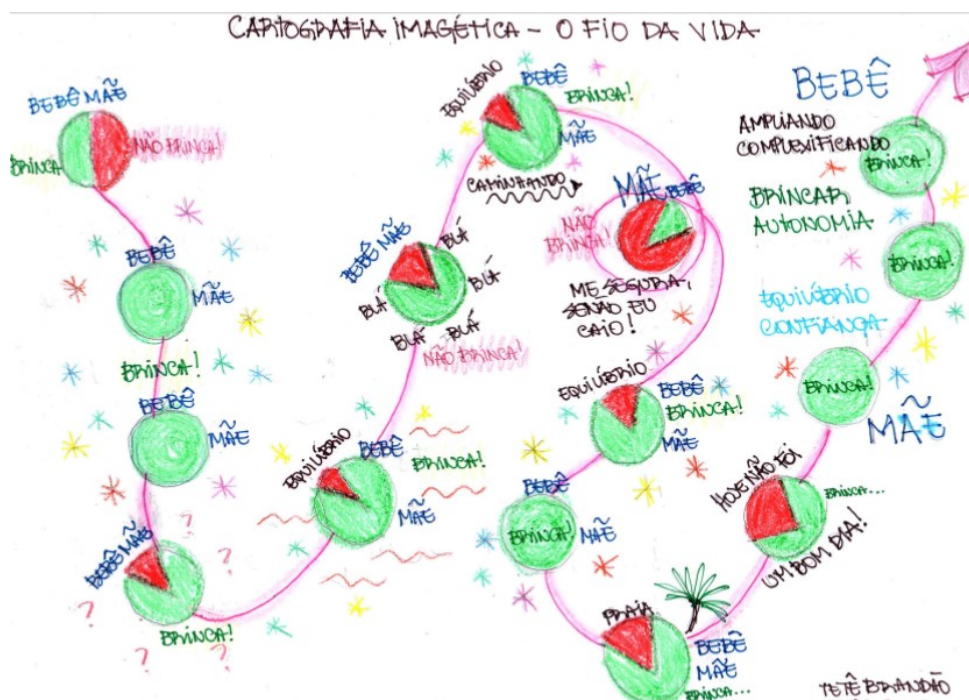 CARTOGRAFIA IMAGÉTICA - O FIO DA VIDA
BEBÊ MÃE
BRINCA
NÃO BRINCA!
BEBÊ
MÃE
BRINCA!
BEBÊ
MÃE
BEBÊ MÃE
?
?
?
?
?
?
BRINCA!
EQUILÍBRIO
BEBÊ
BRINCA!
MÃE
BEBÊ MÃE
BLÁ
BLÁ
BLÁ
BLÁ
BLÁ
NÃO BRINCA!
EQUILÍBRIO
BEBÊ
BRINCA!
MÃE
CAMINHANDO
MÃE
BEBÊ
NÃO
BRINCA!
ME SEGURA,
SENÃO EU
CAIO!
EQUILÍBRIO
BEBÊ
BRINCA!
MÃE
BEBÊ
BRINCA!
MÃE
PRAIA
BEBÊ
MÃE
BRINCA...
HOJE NÃO FOI
BRINCA...
UM BOM DIA!
BRINCA!
MÃE
EQUILÍBRIO
CONFIANÇA
BRINCA!
BRINCAR,
AUTONOMIA
BRINCA!
AMPLIANDO
COMPLEXIFICANDO
BEBÊ
TETÊ BRANDÃO